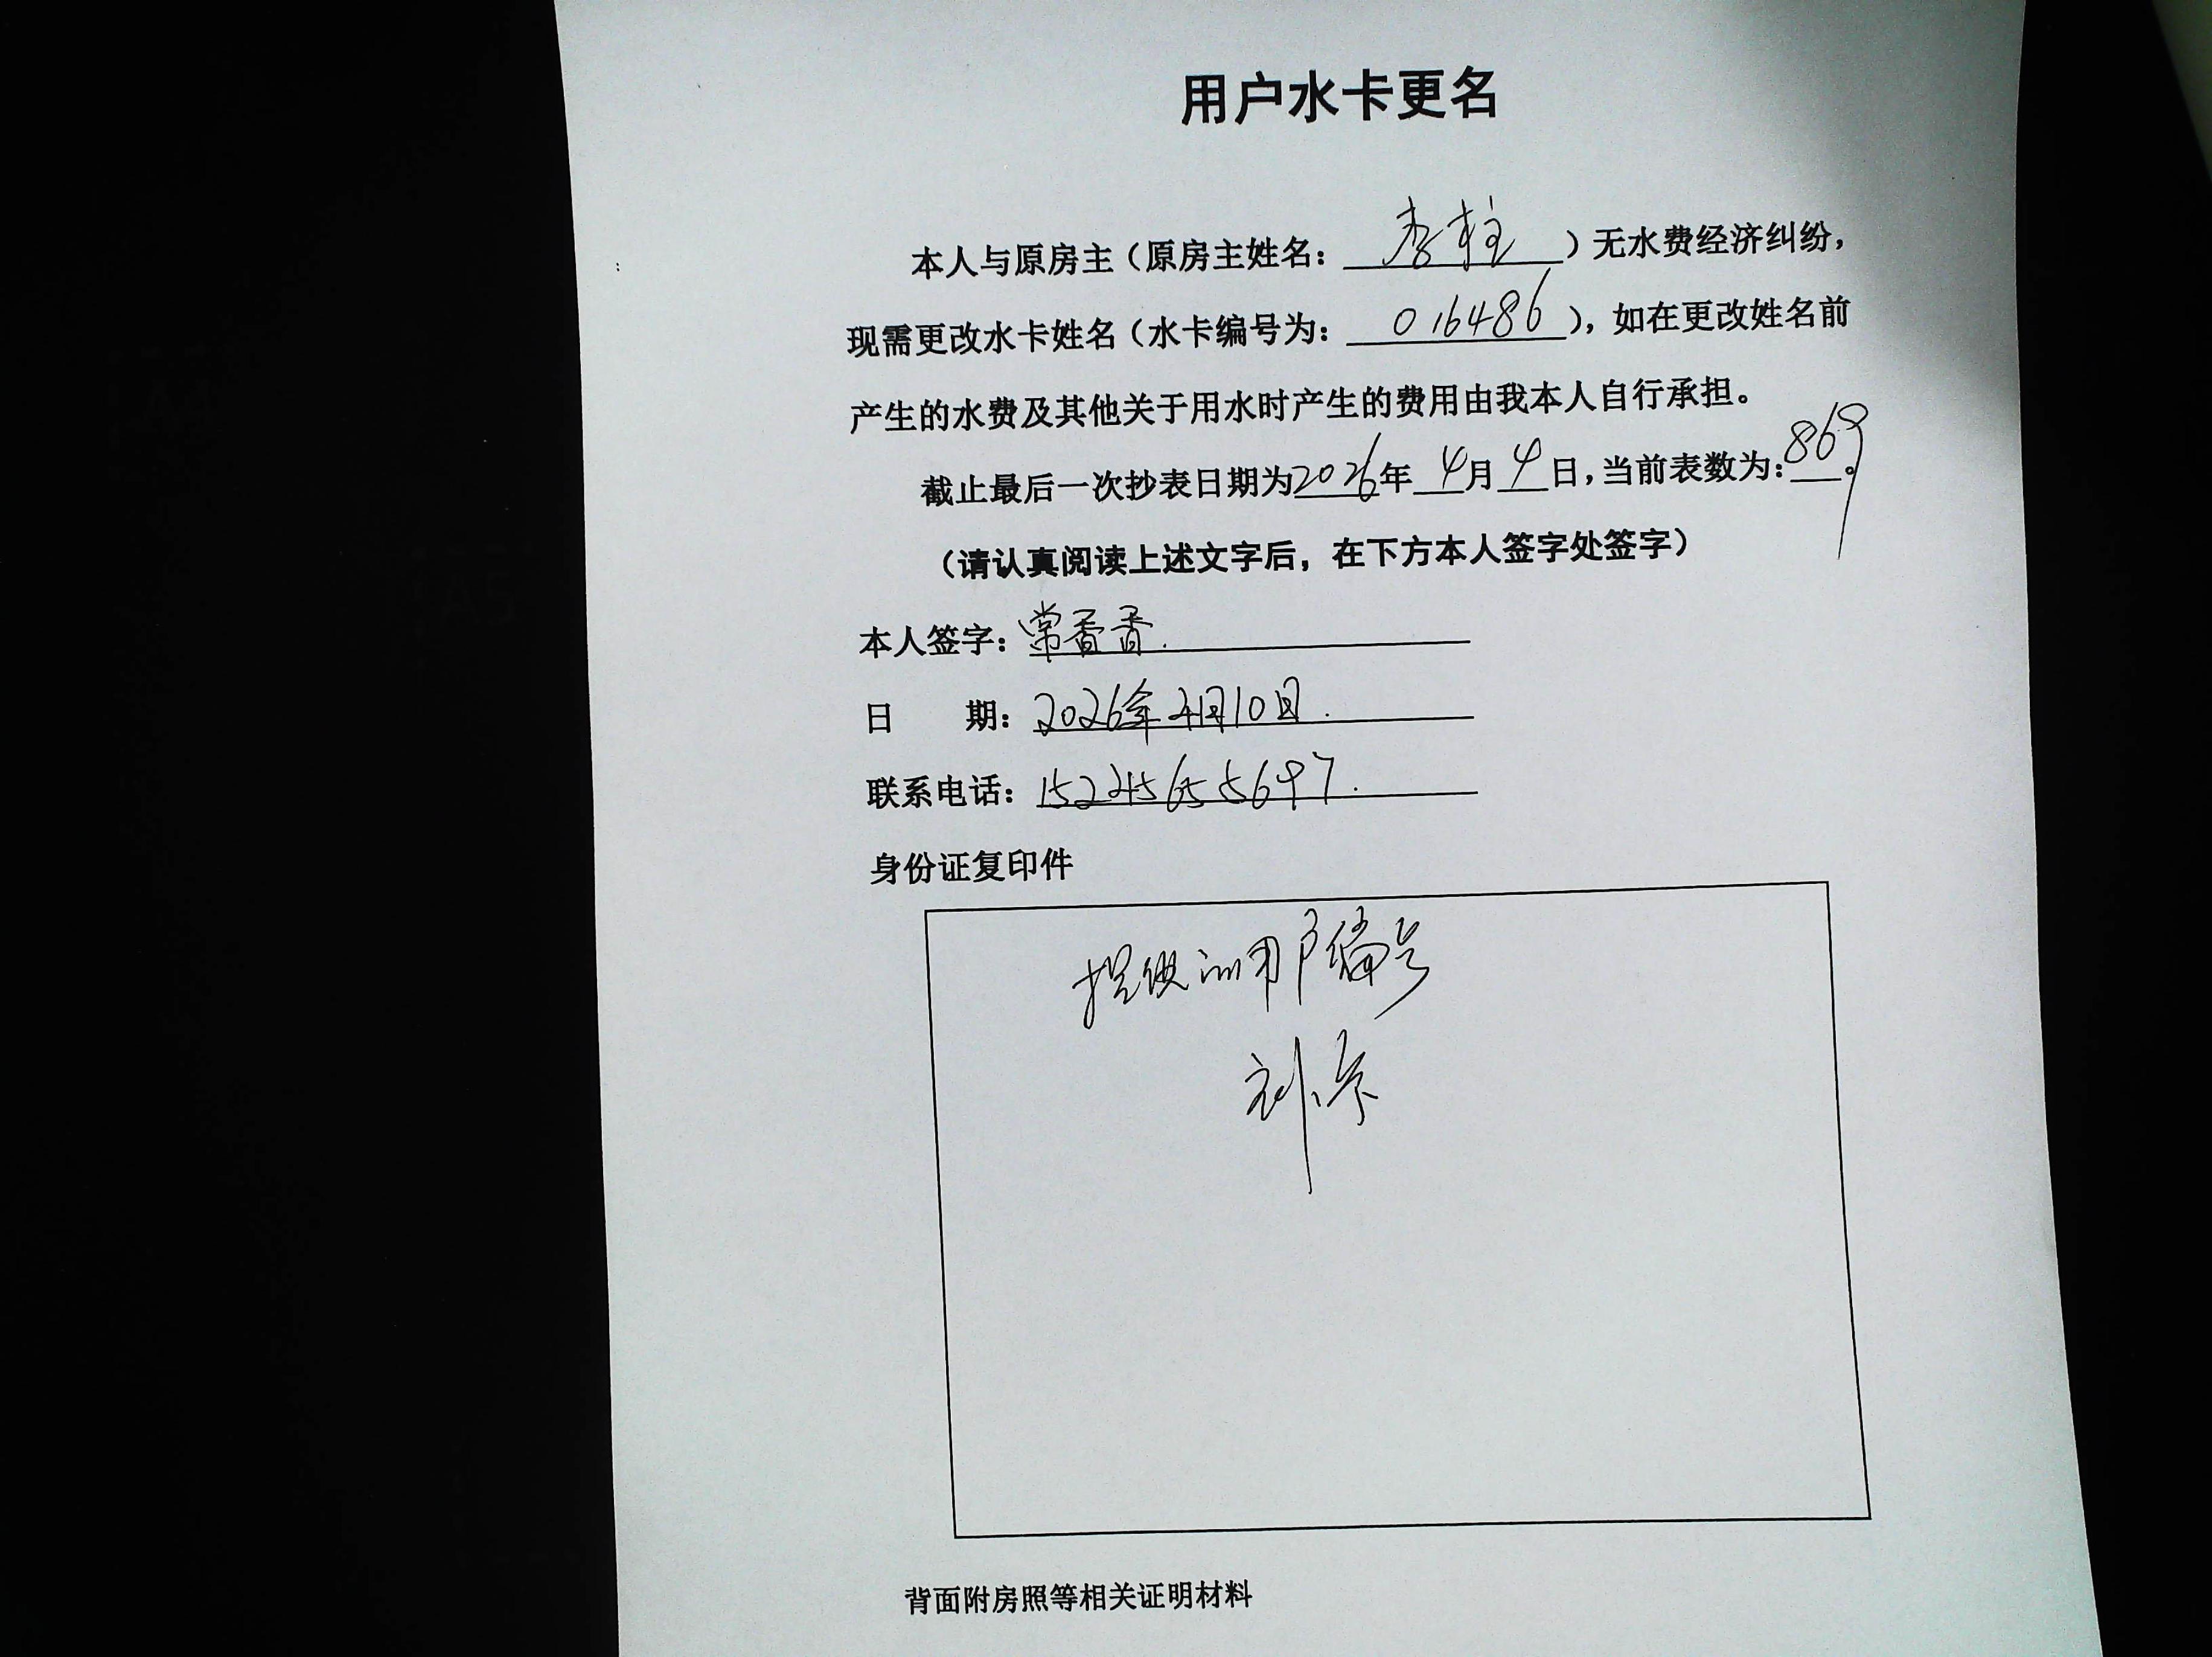 用户水卡更名
本人与原房主（原房主姓名：李柱）无水费经济纠纷，
现需更改水卡姓名（水卡编号为：016486），如在更改姓名前
产生的水费及其他关于用水时产生的费用由我本人自行承担。
截止最后一次抄表日期为2026年4月4日，当前表数为：869。
（请认真阅读上述文字后，在下方本人签字处签字）
本人签字：常香香.
日 期：2026年4月10日.
联系电话：15245655697.
身份证复印件
提供的用户编号
背面附房照等相关证明材料